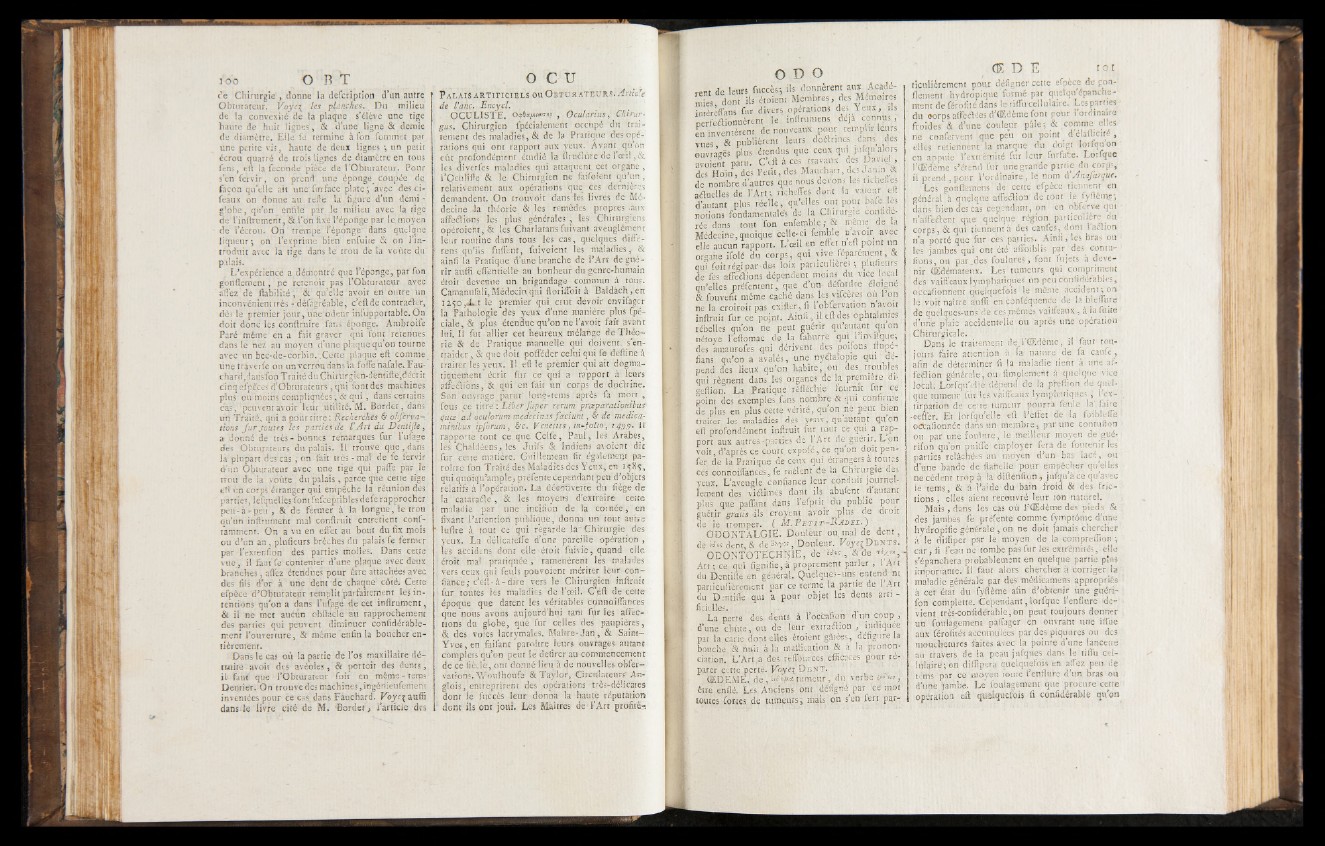 100 O B T
de Chirurgie, donne la deſcription d'un autre
Obturateur. Voyez les planches. Du milieu
de la convexité de la plaque s'élève une tige
haute de huit lignes, & d'une ligne & demie
de diamètre. Elle ſe termine à ſon ſommet par
une petite vis, haute de deux lignes ; un petit
écrou quarré de trois lignes de diamètre en tous
ſens, eſt la ſeconde pièce de l'Obturateur. Pour
s'en ſervir, on prend une éponge coupée de
façon qu'elle ait une ſurface plate ; avec des ci-
ſeaux on donne au reſte la figure d'un demi-
globe, qu'on enfile par le milieu avec la tige
de l'inſtrument, & l'on fixe l'éponge par le moyen
de l'écrou. On trempe l'éponge dans quelque
liqueur ; on l'exprime bien enſuite & on l'in-
troduit avec la tige dans le trou de la voûte du
palais.
L'expérience a démontré que l'éponge, par ſon
gonflement, ne retenoit pas l'Obturateur avec
aſſez de ſtabilité, & qu'elle avoit en outre un
inconvénient très-déſagréable, c'eſt de contracter,
dès le premier jour, une odeur inſupportable. On
doit donc les conſtruire ſans éponge. Ambroiſe
Paré même en a fait graver qui ſont retenues
dans le nez au moyen d'une plaque qu'on tourne
avec un bec-de-corbin. Cette plaque eſt comme
une traverſe ou un verrou dans la foſſe naſale. Fau-
chard, dans ſon Traité du Chirurgien-dentiſte, décrit
cinq eſpèces d'Obturateurs, qui ſont des machines
plus ou moins compliquées ; & qui, dans certains
cas, peuvent avoir leur utilité. M. Border, dans
un Traité, qui a pour titre : Recherches & obſerva-
tions ſur toutes les parties de l'Art du Dentiſte,
a donné de très-bonnes remarques ſur l'uſage
des Obturateurs du palais. Il trouve que, dans
la plupart des cas, on fait très-mal de ſe ſervir
d'un Obturateur avec une tige qui paſſe par le
trou de la voûte du palais, parce que cette tige
eſt un corps étranger qui empêche la réunion des
parties, leſquelles ſont ſuſceptibles de ſe rapprocher
peu-à-peu, & de fermer à la longue, le trou
qu'un inſtrument mal conſtruit entretient conſ-
tamment. On a vu en effet au bout de ſix mois
ou d'un an, pluſieurs brèches du palais ſe fermer
par l'extenſion des parties molles. Dans cette
vue, il faut ſe contenter d'une plaque avec deux
branches, aſſez étendues pour être attachées avec
des fils d'or à une dent de chaque côté. Cette
eſpèce d'Obturateur remplit parfaitement les in-
tentions qu'on a dans l'uſage de cet inſtrument,
& il ne met aucun obſtacle au rapprochement
des parties qui peuvent diminuer conſidérable-
ment l'ouverture, & même enfin la boucher en-
tièrement.
Dans le cas où la partie de l'os maxillaire dé-
truite avoit des avéoles, & portoit des dents,
il faut que l'Obturateur ſoit en même-tems
Dentier. On trouve des machines, ingénieuſement
inventées pour ce cas, dans Fauchard. Voyez auſſi
dans le livre cité de M. Border, l'article des
O C U
PALAIS ARTIFICIELS ou OBTURATEURS. Article
de l'anc. Encycl.
OCULISTE, Ocularius, Chirur-
gus. Chirurgien ſpécialement occupé du trai-
tement des maladies, & de la Pratique des opé-
rations qui ont rapport aux yeux. Avant qu'on
eût profondément étudié la ſtructure de l'œil, &
les diverſes maladies qui attaquent cet organe,
l'Oculiſte & le Chirurgien ne faiſoient qu'un,
relativement aux opérations que ces dernières
demandent. On trouvoit dans les livres de Mé-
decine la théorie & les remèdes propres aux
affections les plus générales, les Chirurgiens
opéroient, & les Charlatans ſuivant aveuglément
leur routine dans tous les cas, quelques diffé-
rens qu'ils fuſſent, ſuivoient les maladies, &
ainſi la Pratique d'une branche de l'Art de gué-
rir auſſi eſſentielle au bonheur du genre-humain
étoit devenue un brigandage commun à tous.
Camanuſali, Médecin qui floriſſoit à Baldach, en
1250, fut le premier qui crut devoir enviſager
la Pathologie des yeux d'une manière plus ſpé-
ciale, & plus étendue qu'on ne l'avoit fait avant
lui. Il ſut allier cet heureux mélange de Théo-
rie & de Pratique manuelle qui doivent s'en-
traider, & que doit poſſéder celui qui ſe deſtine à
traiter les yeux. Il eſt le premier qui ait dogma-
tiquement écrit ſur ce qui a rapport à leurs
affections, & qui en fait un corps de doctrine.
Son ouvrage parut long-tems après ſa mort,
ſous ce titre : Liber ſuper rerum præparationibus
quæ ad oculorum medicinas faciunt, & de medica-
minibus ipſorum, &c. Venetiis, in-folio, 1499. Il
rapporte tout ce que Celſe, Paul, les Arabes,
les Chaldéens, les Juifs & Indiens avoient dit
ſur cette matière. Guillemeau fit également pa-
roître ſon Traité des Maladies des Yeux, en 1585,
qui quoiqu'ample, préſente cependant peu d'objets
relatifs à l'opération. La découverte du ſiège de
la cataracte, & les moyens d'extraire cette
maladie par une inciſion de la cornée, en
fixant l'attention publique, donna un tout autre
luſtre à tout ce qui regarde la Chirurgie des
yeux. La délicateſſe d'une pareille opération,
les accidens dont elle étoit ſuivie, quand elle
étoit mal pratiquée, ramenèrent les malades
vers ceux qui ſeuls pouvoient mériter leur con-
fiance ; c'eſt-à-dire vers le Chirurgien inſtruit
ſur toutes les maladies de l'œil. C'eſt de cette
époque que datent les véritables connoiſſances
que nous avons aujourd'hui tant ſur les affec-
tions du globe, que ſur celles des paupières,
& des voies lacrymales. Maître-Jan, & Saint-
Yves, en faiſant paroître leurs ouvrages autant
complets qu'on peut le déſirer au commencement
de ce ſiècle, ont donné lieu à de nouvelles obſer-
vations. Woolhouſe & Taylor, Circulateurs An-
glois, entreprirent des opérations très-délicates
dont le ſuccès leur donna la haute réputation
dont ils ont joui. Les Maîtres de l'Art profitè-
O D O
rent de leurs ſuccès ; ils donnèrent aux Acadé-
mies, dont ils étoient Membres, des Mémoires
intéreſſans ſur divers opérations des Yeux, ils
perfectionnèrent les inſtrumens déjà connus,
en inventèrent de nouveaux pour remplir leurs
vues, & publièrent leurs doctrines dans des
ouvrages plus étendus que ceux qui juſqu'alors
avoient paru. C'eſt à ces travaux des Daviel,
des Hoin, des Petit, des Mauchart, des Janin &
de nombre d'autres que nous devons les richeſſes
actuelles de l'Art ; richeſſes dont la valeur eſt
d'autant plus réelle, qu'elles ont pour baſe les
notions fondamentales de la Chirurgie conſidé-
rée dans tout ſon enſemble ; & même de la
Médecine, quoique celle-ci ſemble n'avoir avec
elle aucun rapport. L'œil en effet n'eſt point un
organe iſolé du corps, qui vive ſéparément, &
qui ſoit régi par des loix particulières ; pluſieurs
de ſes affections dépendent moins du vice local
qu'elles préſentent, que d'un déſordre éloigné
& ſouvent même caché dans les viſcères où l'on
ne la croiroit pas exiſter, ſi l'obſervation n'avoit
inſtruit ſur ce point. Ainſi, il eſt des ophtalmies
rébelles qu'on ne peut guérir qu'autant qu'on
nétoye l'eſtomac de la ſaburre qui l'infeſte,
des amauroſes qui dérivent des poiſons ſtupé-
fians qu'on a avalés, une nyctalopie qui dé-
pend des lieux qu'on habite, ou des troubles
qui règnent dans les organes de la première di-
geſtion. La Pratique réfléchie fournit ſur ce
point des exemples ſans nombre & qui confirme
de plus en plus cette vérité, qu'on ne peut bien
traiter les maladies des yeux, qu'autant qu'on
eſt profondément inſtruit ſur tout ce qui a rap-
port aux autres parties de l'Art de guérir. L'on
voit, d'après ce court expoſé, ce qu'on doit pen-
ſer de la Pratique de ceux qui étrangers à toutes
ces connoiſſances, ſe mêlent de la Chirurgie des
yeux. L'aveugle confiance leur conduit journel-
lement des victimes dont ils abuſent d'autant
plus que paſſant dans l'eſprit du public pour
guérir gratis ils croyent avoir plus de droit
de le tromper. ( M. PETIT-RADEL. )
ODONTALGIE. Douleur ou mal de dent,
de dent, & de Douleur. Voyez DENTS.
ODONTOTECHNIE, de & de
Art ; ce qui ſignifie, à proprement parler, l'Art
du Dentiſte en général. Quelques-uns entend nt
particulièrement par ce terme la partie de l'Art
du Dentiſte qui a pour objet les dents arti-
ficielles.
La perte des dents à l'occaſion d'un coup,
d'une chûte, ou de leur extraction, indiquée
par la carie dont elles étoient gâtées, défigure la
bouche & nuit à la maſtication & à la pronon-
ciation. L'Art a des reſſources efficaces pour ré-
parer cette perte. Voyez DENT.
ŒDEME. de, tumeur, du verbe
être enflé. Les Anciens ont déſigné par ce mot
toutes ſortes de tumeurs, mais on s'en ſert par-
Œ D E 101
ticulièrement pour déſigner cette eſpèce de gon-
flement hydropique formé par quelqu'épanche-
ment de ſéroſité dans le tiſſu cellulaire. Les parties
du corps affectées d'Œdême ſont pour l'ordinaire
froides & d'une couleur pâle ; & comme elles
ne conſervent que peu ou point d'élaſticité,
elles retiennent la marque du doigt lorſqu'on
en appuie l'extrémité ſur leur ſurface. Lorſque
l'Œdême s'étend ſur une grande partie du corps,
il prend, pour l'ordinaire, le nom d'Anaſarque.
Les gonflemens de cette eſpèce tiennent en
général à quelque affection de tout le ſyſtême ;
dans bien des cas cependant, on en obſerve qui
n'affectent que quelque région particulière du
corps, & qui tiennent à des cauſes, dont l'action
n'a porté que ſur ces parties. Ainſi, les bras ou
les jambes qui ont été affoiblis par des contu-
ſions, ou par des foulures, ſont ſujets à deve-
nir Œdémateux. Les tumeurs qui compriment
des vaiſſeaux lymphatiques un peu conſidérables,
occaſionnent quelquefois le même accident ; on
le voit naître auſſi en conſéquence de la bleſſure
de quelques-uns de ces mêmes vaiſſeaux, à la ſuite
d'une plaie accidentelle ou après une opération
Chirurgicale.
Dans le traitement de l'Œdême, il faut tou-
jours faire attention à la nature de ſa cauſe,
afin de déterminer ſi la maladie tient à une af-
fection générale, ou ſimplement à quelque vice
local. Lorſqu'elle dépend de la preſſion de quel-
que tumeur ſur les vaiſſeaux lymphatiques, l'ex-
tirpation de cette tumeur pourra ſeule la faire
ceſſer. Et lorſqu'elle eſt l'effet de la foibleſſe
occaſionnée dans un membre, par une contuſion
ou par une foulure, le meilleur moyen de gué-
riſon qu'on puiſſe employer ſera de ſoutenir les
parties relâchées au moyen d'un bas lacé, ou
d'une bande de flanelle pour empêcher qu'elles
ne cèdent trop à la diſtenſion, juſqu'à ce qu'avec
le tems, & à l'aide du bain froid & des fric-
tions, elles aient recouvré leur ton naturel.
Mais, dans les cas où l'Œdême des pieds &
des jambes ſe préſente comme ſymptôme d'une
hydropiſie générale, on ne doit jamais chercher
à le diſſiper par le moyen de la compreſſion ;
car, ſi l'eau ne tombe pas ſur les extrémités, elle
s'épanchera probablement en quelque partie plus
importante. Il faut alors chercher à corriger la
maladie générale par des médicamens appropriés
à cet état du ſyſtême afin d'obtenir une guéri-
ſon complette. Cependant, lorſque l'enflure de-
vient très-conſidérable, on peut toujours donner
un ſoulagement paſſager en ouvrant une iſſue
aux ſéroſités accumulées par des piquures ou des
mouchetures faites avec la pointe d'une lancette
au travers de la peau juſques dans le tiſſu cel-
lulaire ; on diſſipera quelquefois en aſſez peu de
tems par ce moyen toute l'enflure d'un bras ou
d'une jambe. Le ſoulagement que procure cette
opération eſt quelquefois ſi conſidérable qu'on